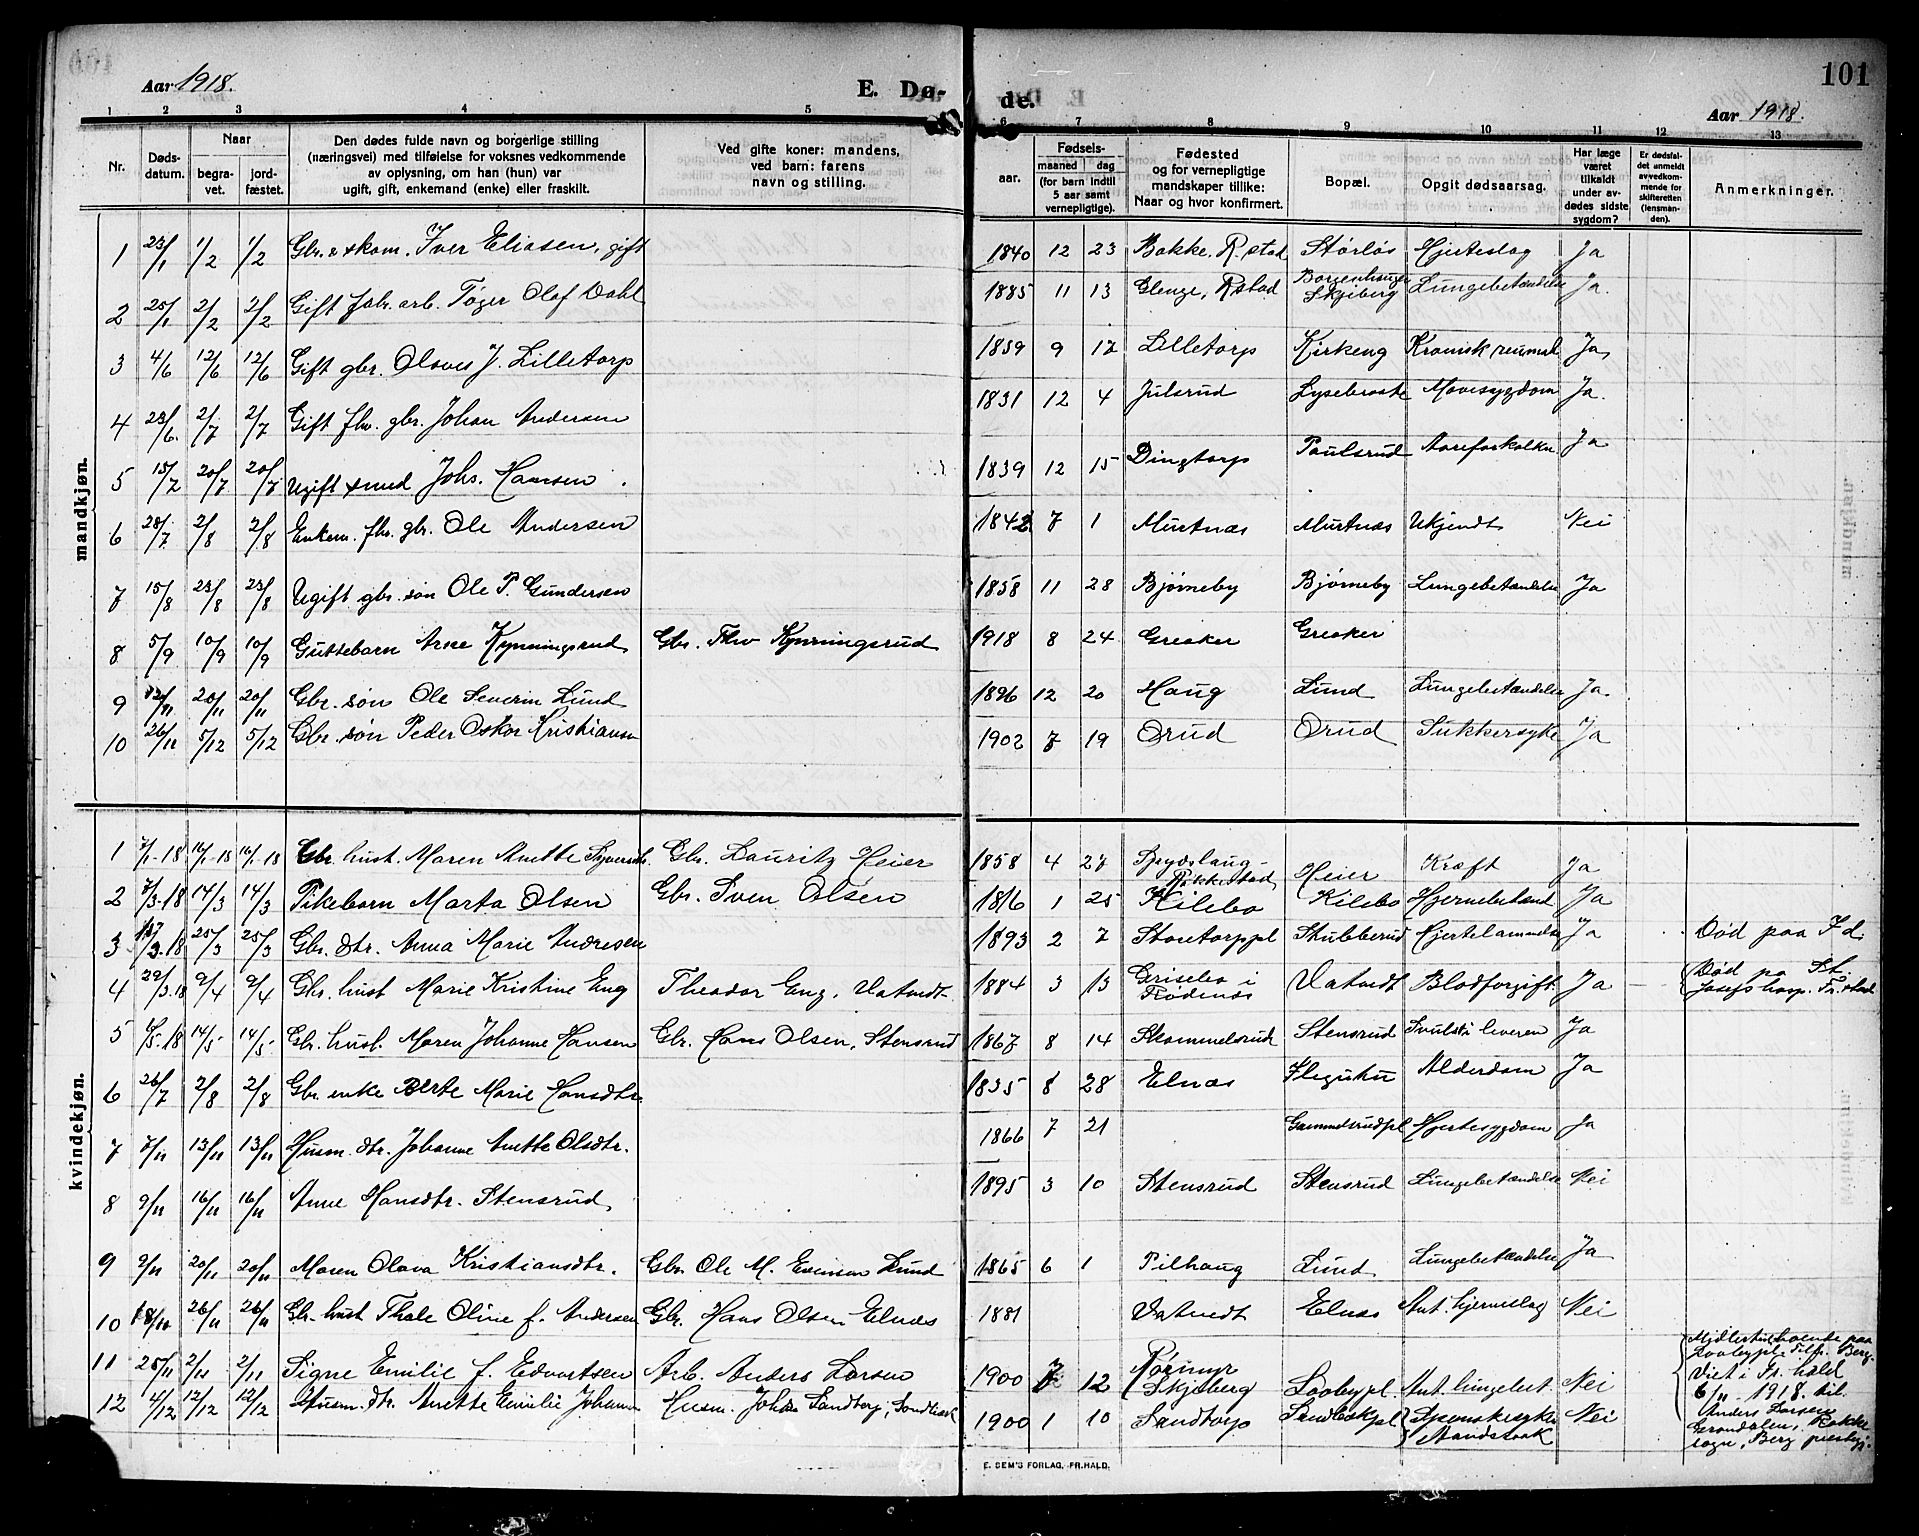 Aar 1918. E. Dø- de. Aar 1918. 101
1 2 3 4 5 6 7 8 9 10 11 12 13
Nr. Døds-datum. Naar begra-vet. jord-fæstet. Den dødes fulde navn og borgerlige stilling (næringsvei) med tilføielse for voksnes vedkommende av oplysning, om han (hun) var ugift, gift, enkemand (enke) eller fraskilt. Ved gifte koner: mandens, ved barn: farens navn og stilling. Fødsels- aar. maaned dag (for barn indtil 5 aar samt vernepligtige). Fødested og for vernepligtige mandskaper tillike: Naar og hvor konfirmert. Bopæl. Opgit dødsaarsag. Har læge været tilkaldt under av-dødes sidste sygdom? Er dødsfal-det anmeldt av vedkom-mende for skifteretten (lensman-den). Anmerkninger.
mandkjøn.
1 23/1 1/2 1/2 Gbr. & skom. Iver Eliasen, gift 1840 12 23 Bakke, R.stad Størløs Hjerteslag Ja
2 25/1 2/2 2/2 Gift fabr. arb. Tøger Olaf Dahl 1885 11 13 Glenge, R.stad Borgenhaugen Skjeberg Lungebetændelse Ja.
3 4/6 12/6 12/6 Gift gbr. Olaves J. Lilletorp 1859 9 17 Lilletorp Kirkeng Kronisk reumat Ja
4 23/6. 2/7 2/7 Gift fhv. gbr. Johan Andersen 1831 12 4 Julsrud Lysebraate Mavesygdom Ja.
5 15/7 20/7 20/7 Ugift smed Johs. Hansen 1839 12 15 Dingtorp Paulsrud Aareforkalkn Ja
6 28/7 2/8 2/8 Enkem. fhv. gbr. Ole Andersen 1842 7 1 Murtnæs Murtnæs Ukjendt Nei
7 15/8 23/8 23/8 Ugift gbr. søn Ole P. Gundersen 1858 11 28 Bjørneby Bjørneby Lungebetændelse Ja
8 5/9 10/9 10/9 Guttebarn Arne Kynningsrud Gbr. Thv Kynningsrud 1918 8 24 Greaker Greaker
9 12/11 20/11 20/11 Gbr. søn Ole Severin Lund 1896 12 20 Haug Lund Lungebetændelse Ja.
10 26/11 5/12 5/12 Gbr. søn Peder Oskar Kristiansen 1902 7 19 Orud Orud Sukkersyke Ja
kvindekjøn.
1 7/1-18 16/1-18 16/1-18 Gbr. hust. Maren Anette Gbr. Lauritz Heier 1858 4 27 Rakkestad Heier Kræft Ja
2 7/3-18 14/3 14/3 Pikebarn Marta Olsen Gbr. Sven Olsen 1 25 Kilebo Kilebo Hjernebetænd Ja
3 17/3-18 25/3 25/3 Gbr. dtr. Anna Marie Andresen 1893 2 7 Stortorppl Stubberud Hjertelammelse Ja Død paa Fd.
4 29/3-18 9/4 9/4 Gbr. hust Marie Kristine Eng Theodor Eng, Vatvedt 1884 3 13 Grisebo i Rødenes Vatvedt Blodforgift Ja Død pa St. Josefs hosp. Fr.stad
5 6/5-18 14/5 14/5 Gbr. hust. Maren Johanne Hansen Gbr. Hans Olsen, Stensrud 1867 8 14 Skammelsrud Stensrud Svulst i leveren Ja
6 26/7 2/8 2/8 Gbr enke Berte Marie Hansdtr. 1835 8 28 Elnæs Alderdom Ja
7 7/11 13/11 13/11 Husm. dtr. Johanne Anette Olsdtr. 1866 7 21 Gammelsrudpl Hjertesygdom Ja
8 9/11 16/11 16/11 Anne Hansdtr. Stensrud 1895 3 10 Stensrud Stensrud Lungebetændelse Nei
9 9/11 20/11 20/11 Maren Olava Kristiansdtr. Gbr. Ole M. Evensen Lund 1865 6 1 Pilhaug Lund Lungebetændelse Ja
10 18/11 26/11 26/11 Gbr. hust Thale Oline f. Andersen Gbr. Hans Olsen Elnæs 1881 Vatvedt Elnæs Ant. hjerneslag Nei
11 25/11 2/11 2/11 Signe Emilie f. Edvartsen Arb. Anders Larsen 1900 7 12 Skjeberg Laabypl. Ant. lungebet. Nei
12 4/12 12/12 12/12 Husm. dtr. Anette Emilie Johansen Husm. Johan Sandtorp, 1900 1 10 Sandtorp Spanskesyke Nei
Midlertid boende paa Laabypl. tilh. Berg. Viet i Fr.hald 6/11-1918. til. Anders Larsen Grøndalen, Rokke sogn, Berg prestegj.
E. SEM'S FORLAG, FR.HALD.